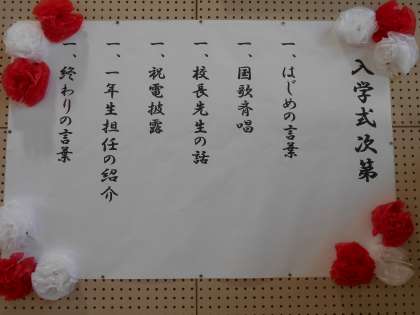 入学式次第
一、はじめの言葉
一、国歌斉唱
一、校長先生の話
一、祝電披露
一、一年生担任の紹介
一、終わりの言葉